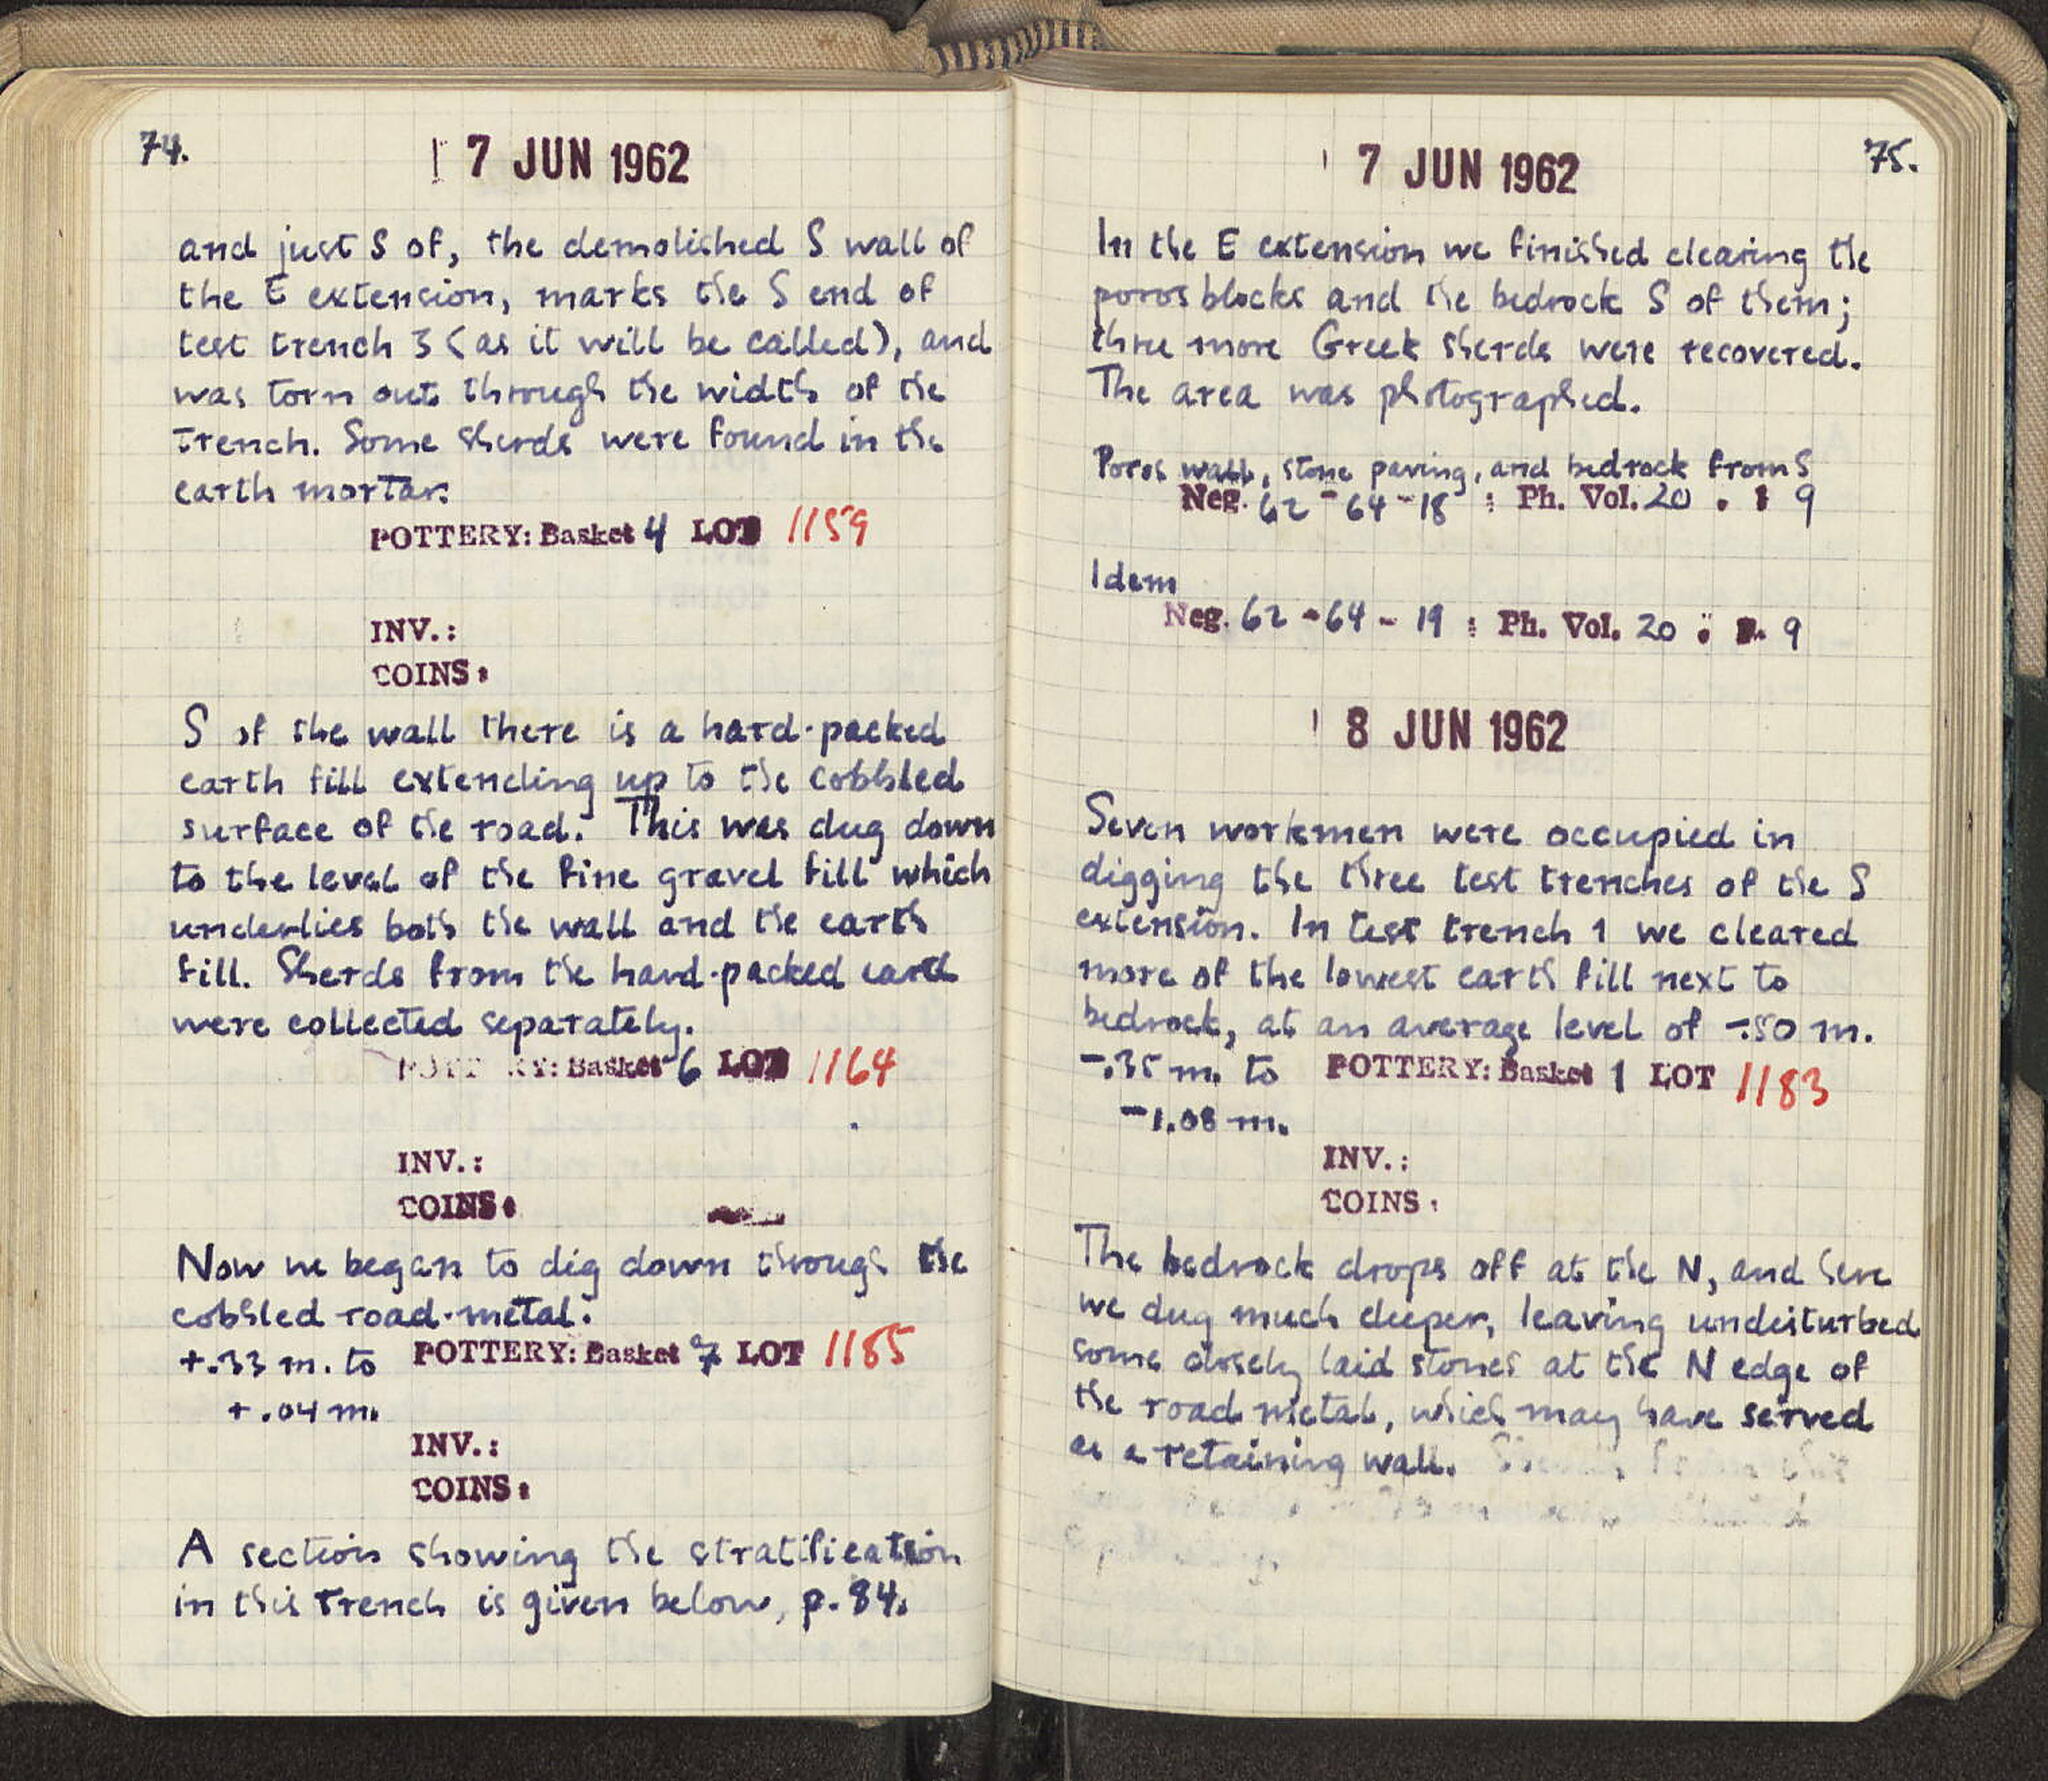 74.
7 JUN 1962
and just S of, the demolished S wall of
the E extension, marks the S end of
test trench 3 (as it will be called), and
was torn out through the width of the
trench. Some sherds were found in the
earth mortar.
POTTERY: Basket 4 LOT 1159
INV.:
COINS:
S of the wall there is a hard-packed
earth fill extending up to the cobbled
surface of the road. This was dug down
to the level of the fine gravel fill which
underlies both the wall and the earth
fill. Sherds from the hard-packed earth
were collected separately.
POTTERY: Basket 6 LOT 1164
INV.:
COINS:
Now we began to dig down through the
cobbled road-metal.
+.33 m. to POTTERY: Basket 7 LOT 1165
+.04 m.
INV.:
COINS:
A section showing the stratification
in this trench is given below, p. 84.
7 JUN 1962
75.
In the E extension we finished clearing the
poros blocks and the bedrock S of them;
three more Greek sherds were recovered.
The area was photographed.
Poros wall, stone paving, and bedrock from S
Neg. 62-64-18 : Ph. Vol. 20 . : 9
Idem
Neg. 62-64-19 : Ph. Vol. 20 : p. 9
8 JUN 1962
Seven workmen were occupied in
digging the three test trenches of the S
extension. In test trench 1 we cleared
more of the lowest earth fill next to
bedrock, at an average level of -.50 m.
-.35 m. to POTTERY: Basket 1 LOT 1183
-1.08 m.
INV.:
COINS:
The bedrock drops off at the N, and here
we dug much deeper, leaving undisturbed
some closely laid stones at the N edge of
the road metal, which may have served
as a retaining wall.